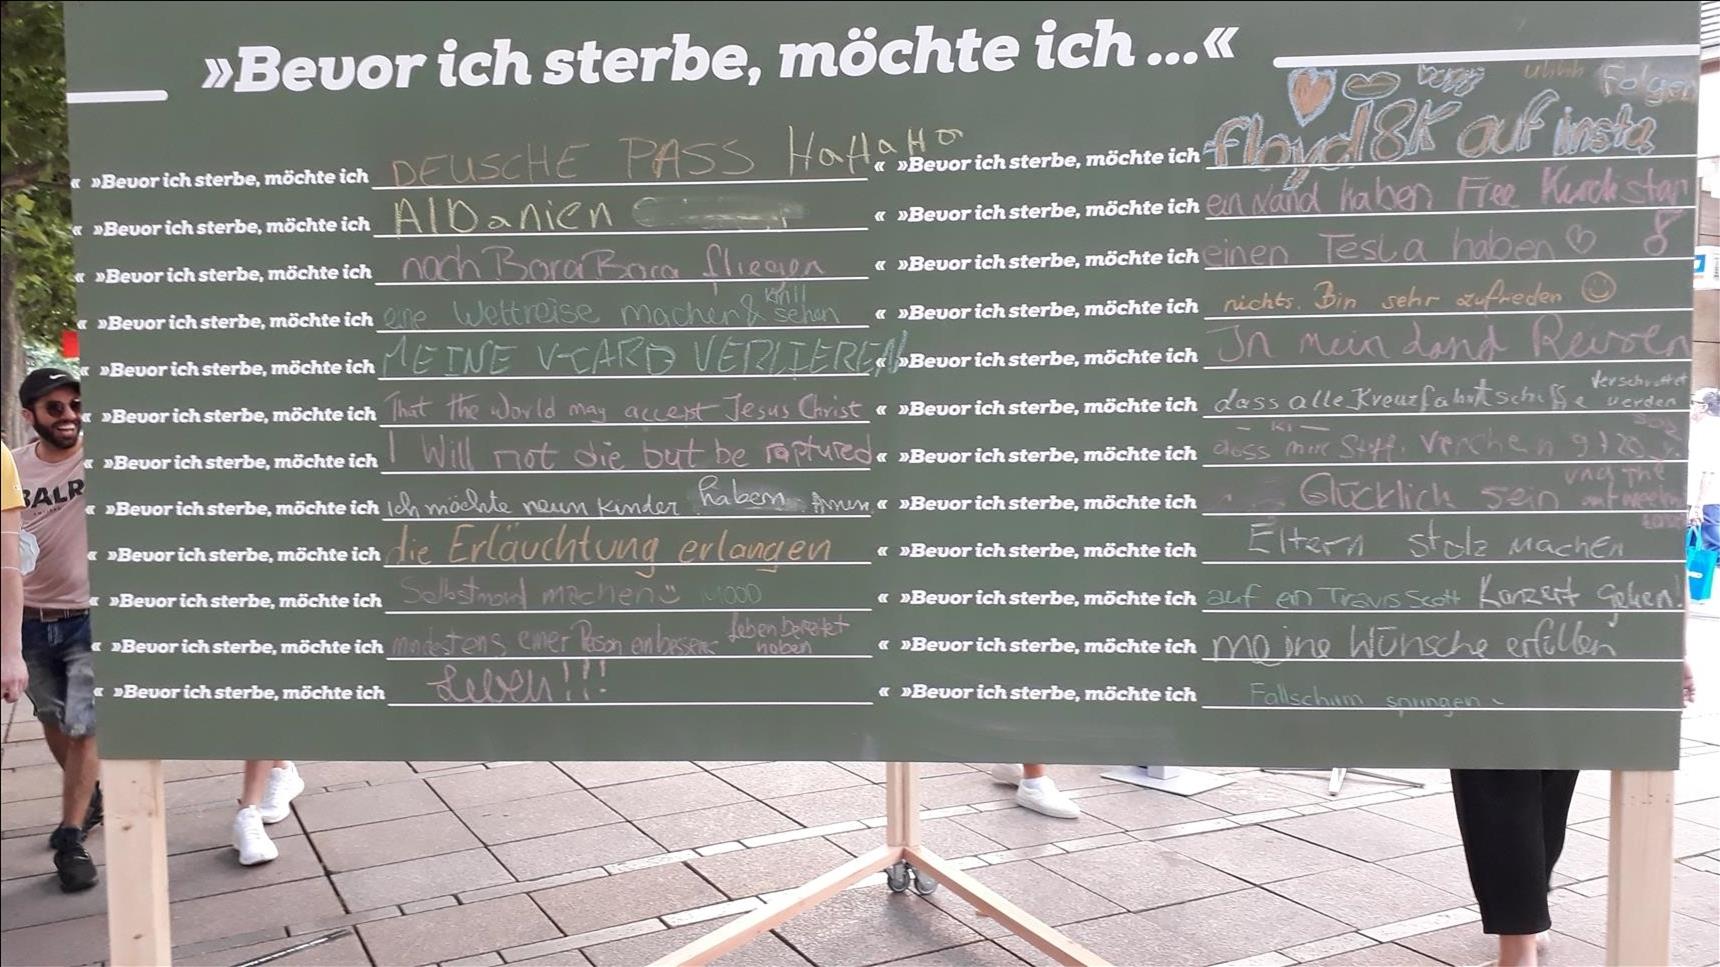 »Bevor ich sterbe, möchte ich ...«
»Bevor ich sterbe, möchte ich DEUSCHE PASS HaHaHa «
»Bevor ich sterbe, möchte ich AlBanien «
»Bevor ich sterbe, möchte ich nach Bora Bora fliegen «
»Bevor ich sterbe, möchte ich eine Weltreise machen & krill sehen «
»Bevor ich sterbe, möchte ich MEINE V-CARD VERLIEREN «
»Bevor ich sterbe, möchte ich That the World may accept Jesus Christ «
»Bevor ich sterbe, möchte ich I Will not die but be raptured «
»Bevor ich sterbe, möchte ich Ich möchte neun kinder haben «
»Bevor ich sterbe, möchte ich die Erläuchtung erlangen «
»Bevor ich sterbe, möchte ich Selbstmord machen «
»Bevor ich sterbe, möchte ich mindestens einer Person ein besseres Leben bereitet haben «
»Bevor ich sterbe, möchte ich Leben!!! «
»Bevor ich sterbe, möchte ich floyd18K auf insta Folgen
»Bevor ich sterbe, möchte ich ein Land haben Free Kurdistan
»Bevor ich sterbe, möchte ich einen Tesla haben
»Bevor ich sterbe, möchte ich nichts. Bin sehr zufrieden
»Bevor ich sterbe, möchte ich In mein Land Reisen
»Bevor ich sterbe, möchte ich dass alle Kreuzfahrtschiffe verschrottet werden
»Bevor ich sterbe, möchte ich dass
»Bevor ich sterbe, möchte ich Glücklich sein
»Bevor ich sterbe, möchte ich Eltern stolz machen
»Bevor ich sterbe, möchte ich auf ein Travis Scott Konzert gehen!
»Bevor ich sterbe, möchte ich meine Wünsche erfüllen
»Bevor ich sterbe, möchte ich Fallschirm springen
BALR